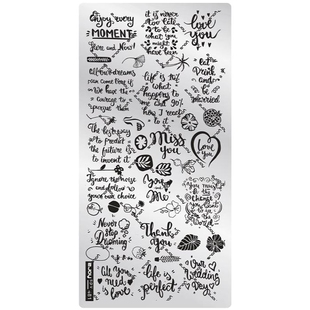 Enjoy every
MOMENT
Here and Now!
it is never
too late
to be
what you
might
have been
I love
you
All our dreams
can come true if
we have the
courage to
pursue them
Life is 10%
what
happens to
me and 90%
how I react
to it
Eat
Drink
and
be
married
The best way
to predict
the future is
to invent it
Miss
you
I
Love
you
Ignore the noise
and follow
your own choice
You
and
Me
Never
Stop
Dreaming
Thank
you
All you
need
is love
life is
perfect
Our
Wedding
Day